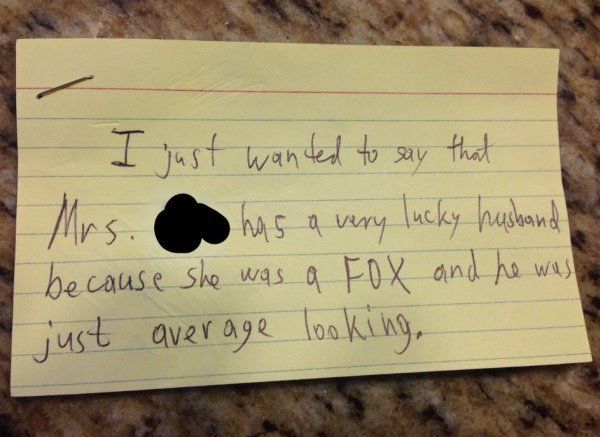 I just wanted to say that
Mrs. has a very lucky husband
because she was a FOX and he was
just average looking.